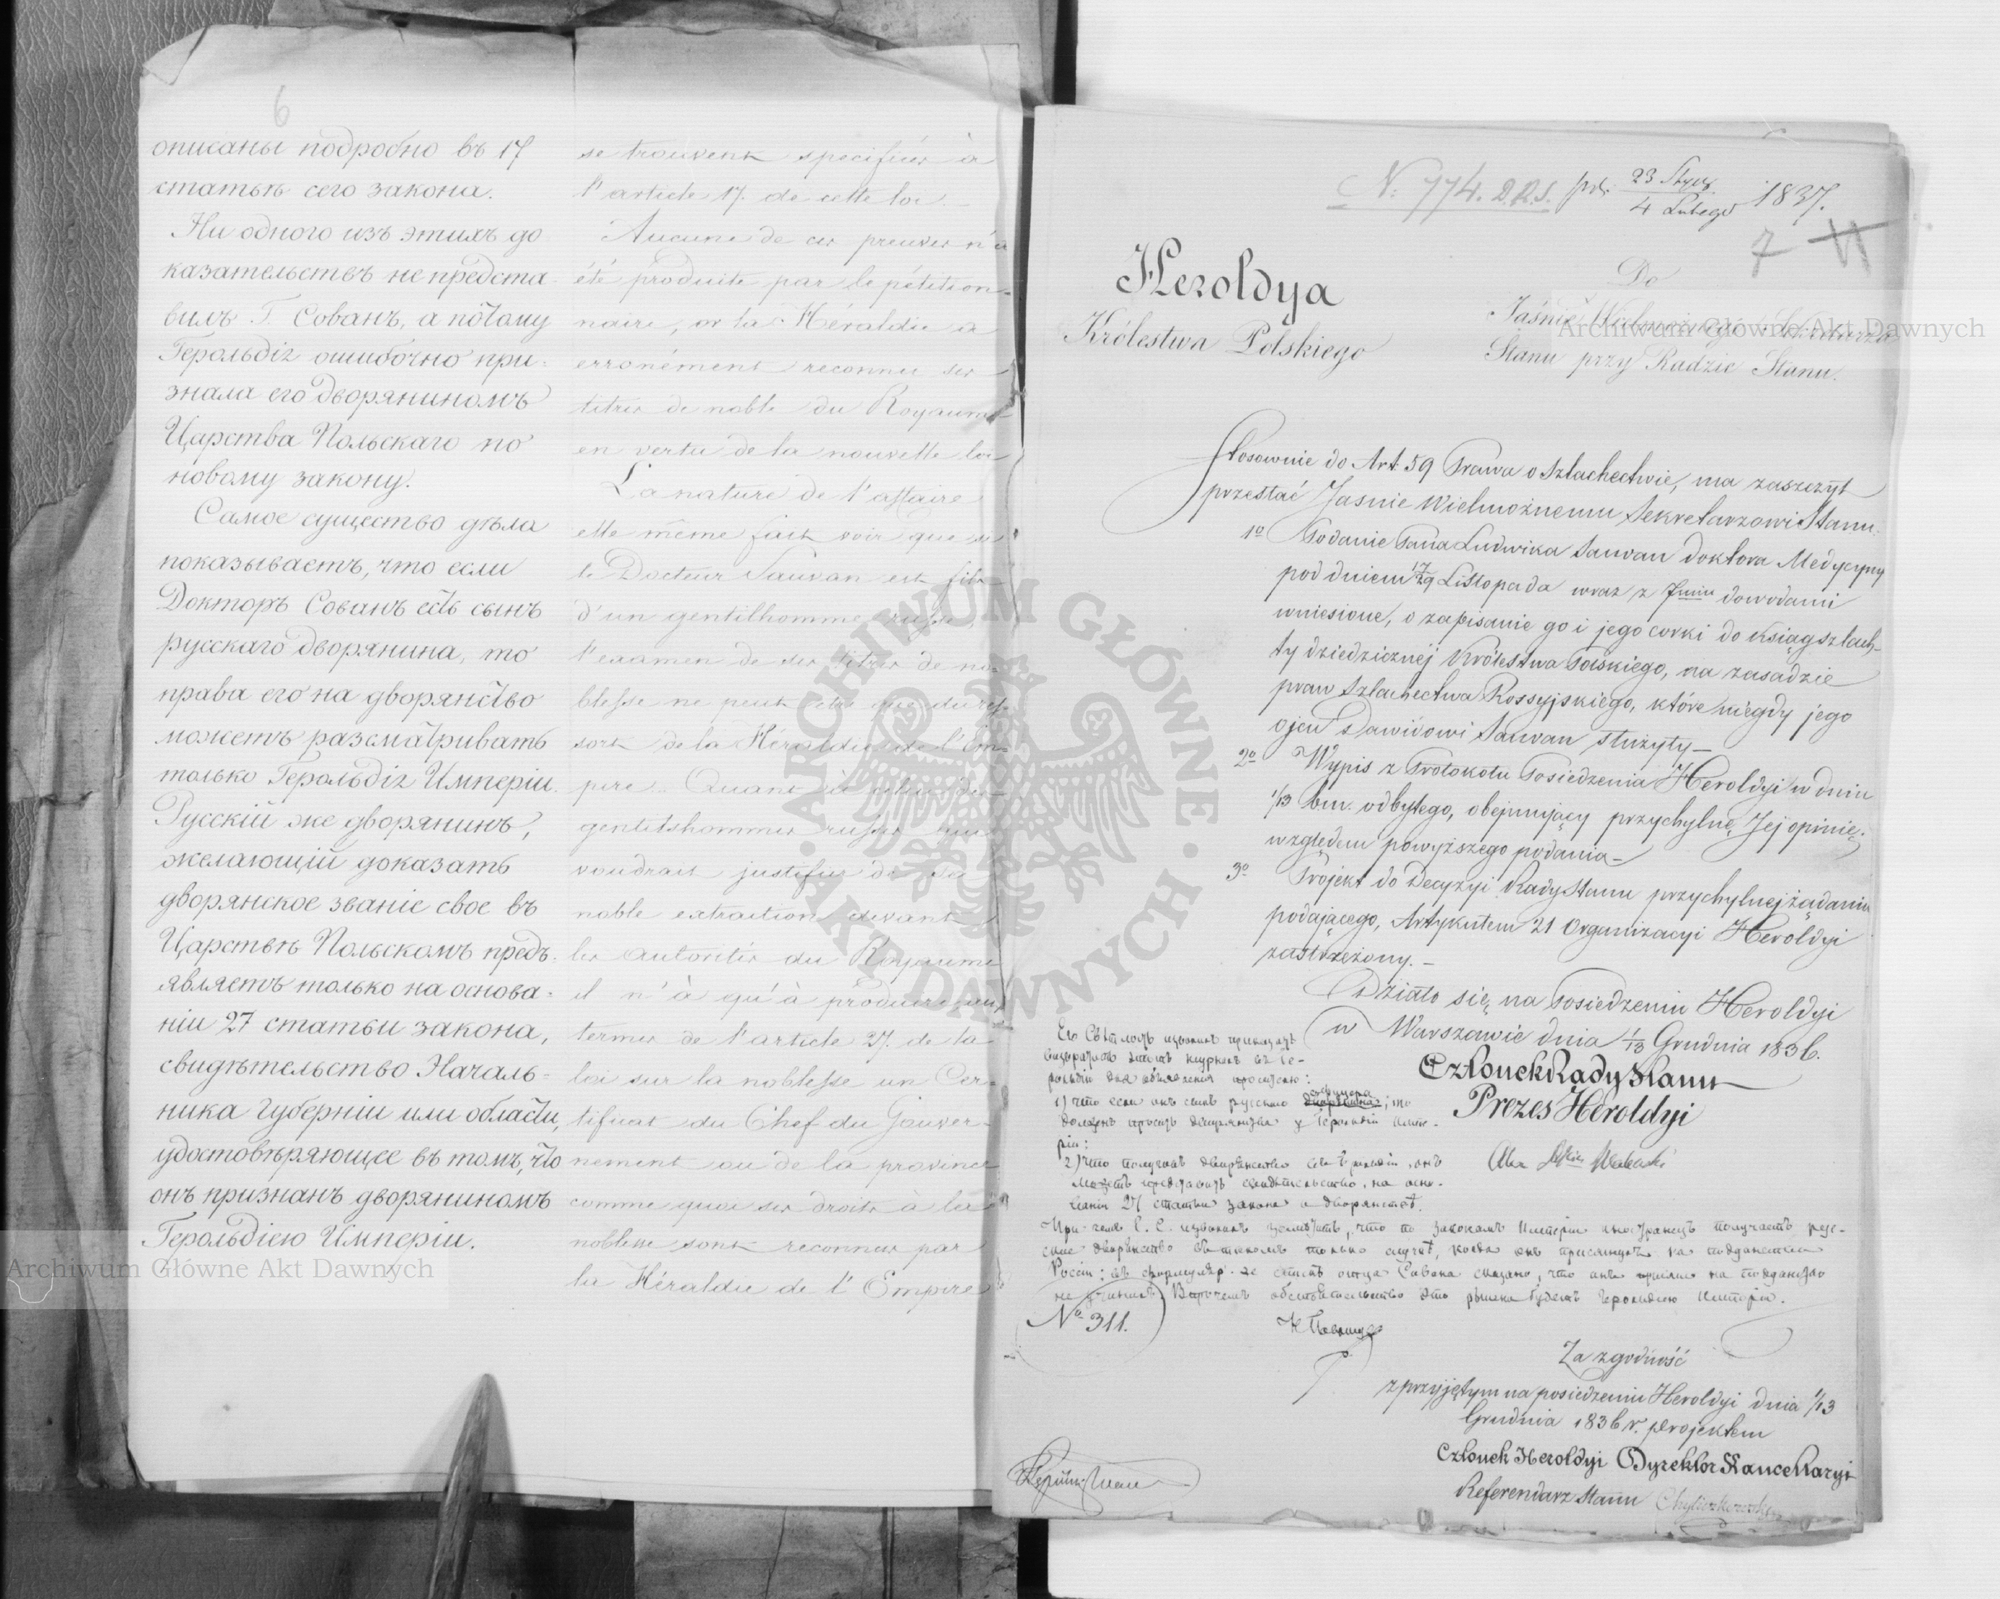 6
описаны подробно въ 17
статьѣ сего закона.
Ни одного изъ этихъ до
казательствъ не предста-
вилъ Г. Сованъ, а пото́му
Герольдія ошибочно при-
знала его дворяниномъ
Царства Польскаго по
новому закону.
Самое существо дѣла
показываетъ, что если
Докторъ Сованъ есть сынъ
русскаго дворянина, то
права его на дворянство
можетъ разсматривать
только Герольдія Имперіи.
Русскій же дворянинъ,
желающій доказать
дворянское званіе свое въ
Царствѣ Польскомъ предъ-
являетъ только на основа-
ніи 27 статьи закона,
свидѣтельство Началь-
ника Губерніи или области,
удостовѣряющее въ томъ, что
онъ признанъ дворяниномъ
Герольдіею Имперіи.
se trouvent specifiées à
l'article 17. de cette loi.
Aucune de ces preuves n'a
été produite par le pétition-
naire, or la Héraldie a
erronément reconnu ses
titres de noble du Royaume
en vertu de la nouvelle loi
La nature de l'affaire
elle même fait voir que si
le Docteur Sauvan est fils
d'un gentilhomme russe,
l'examen de ses titres de no-
blesse ne peut être que du res-
sort de la Héraldie de l'Em-
pire. Quant à
gentilshommes russes qui
voudrait justifier de sa
noble extraction devant
les autorités du Royaume
il n'à qu'à produire aux
termes de l'article 27. de la
loi sur la noblesse un Cer-
tificat du Chef du Gouver-
nement ou de la province
comme quoi ses droits à la
noblesse sont reconnus par
la Héraldie de l'Empire
N. 774. D.R.S. 23 Stycz.
4 Lutego 1837.
7 11
Heroldya
Królestwa Polskiego
Do
Jaśnie Wielmożnego Sekretarza
Stanu przy Radzie Stanu.
Stosownie do Art 59 Prawa o Szlachectwie, ma zaszczyt
przesłać Jaśnie Wielmożnemu Sekretarzowi Stanu.
1º Podanie Pana Ludwika Sauvan Doktora Medycyny
pod dniem 17/29 Listopada wraz z 7miu dowodami
wniesione, o zapisanie go i jego córki do Ksiąg szlach-
ty dziedzicznej Królestwa Polskiego, na zasadzie
praw Szlachectwa Rossyjskiego, które niegdy jego
ojcu Dawidowi Sauvan służyły —
2º Wypis z Protokołu Posiedzenia Heroldyi w dniu
1/13 bm. odbytego, obejmujący przychylną Jej opinię
względem powyższego podania —
3º Projekt do Decyzyi Rady Stanu przychylnej żądaniu
podającego, Artykułem 21 Organizacyi Heroldyi
zastrzeżony. —
Działo się na Posiedzeniu Heroldyi
w Warszawie dnia 1/13 Grudnia 1836.
Członek Rady Stanu
Prezes Heroldyi
Его Свѣтлость изволилъ приказать
возвратить журналъ въ Ге-
рольдію для объявленія просителю:
1) что если онъ сынъ русскаго офицера дворянина; то
долженъ просить у Герольдіи Импе-
ріи:
2) что получивъ дворянство онъ
можетъ представить свидѣтельство, на осно-
ваніи 27 статьи закона о дворянствѣ.
При чемъ С. С. изволилъ замѣтить, что по законамъ Имперіи иностранецъ получаетъ рус-
ское дворянство въ такомъ только случаѣ, когда онъ присягнулъ на подданство
Россіи: въ формуляр. же спискѣ отца Сована сказано, что онъ присяги на подданство
не учинилъ. Впрочемъ обстоятельство это рѣшено будетъ Герольдіею Имперіи.
Nº 311.
Za zgodność
z przyjętym na posiedzeniu Heroldyi dnia 1/13
Grudnia 1836 r. projektem
Członek Heroldyi Dyrektor Kancellaryi
Referendarz Stanu
Archiwum Główne Akt Dawnych
Archiwum Główne Akt Dawnych
ARCHIWUM GŁÓWNE AKT DAWNYCH